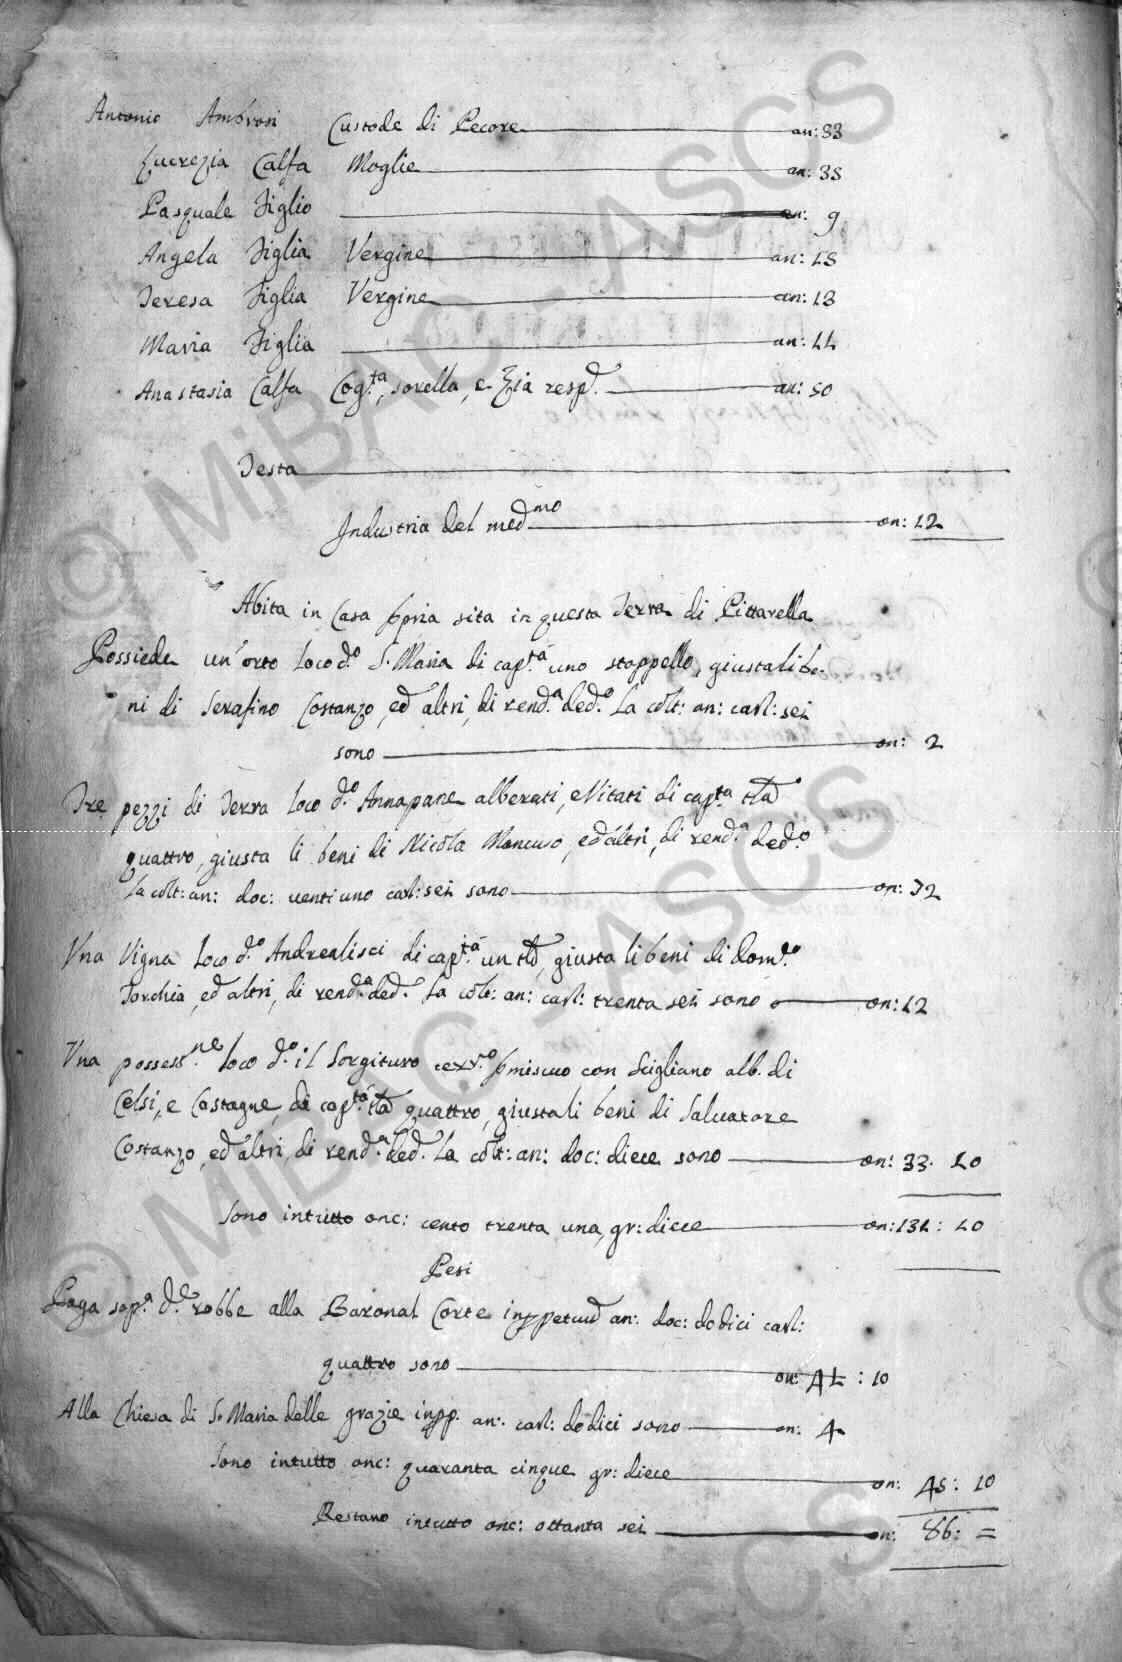 Antonio Ambrosi Custode di Pecore an: 33
Lucrezia Calfa Moglie an: 38
Pasquale Figlio an: 9
Angela Figlia Vergine an: 15
Teresa Figlia Vergine an: 13
Maria Figlia an: 11
Anastasia Calfa Cog.ta, sorella, e Zia resp.
an: 50
Testa
Industria del med.mo on: 12
Abita in Casa ppria sita in questa Terra di Pittarella
Possiede un'orto loco d.o S. Maria di cap.tà uno stoppello, giusta li be-
ni di Serafino Costanzo, ed altri, di rend.a ded.o la colt: an: carl: sei
sono on: 2
Tre pezzi di Terra loco d.o Annapane alberati, e Vitati di cap.ta tta
quattro, giusta li beni di Nicola Mancuso, ed altri, di rend.a ded.o
la colt: an: doc: ventiuno carl: sei sono on: 72
Una Vigna loco d.o Andrealisci di cap.tà un tta, giusta li beni di Dom.co
Torchia, ed altri, di rend.a ded. la colt: an: carl: trenta sei sono on: 12
Una possess.ne loco d.o il Sorgituro terr.o pmiscuo con Scigliano alb. di
Celsi, e Castagne, di cap.tà tta quattro, giusta li beni di Salvatore
Costanzo, ed altri, di rend.a ded. la colt: an: doc: diece sono on: 33. 10
Sono intutto onc: cento trenta una, gr: diece on: 131: 10
Pesi
Paga sop.a d.e robbe alla Baronal Corte inppetuu an: doc: dodici carl:
quattro sono on: 41: 10
Alla Chiesa di S. Maria delle grazie inpp. an: carl: dodici sono on: 4
Sono intutto onc: quaranta cinque gr: diece on: 45: 10
Restano intutto onc: ottanta sei on: 86: =
© MiBAC - ASCS
© MiBAC - ASCS